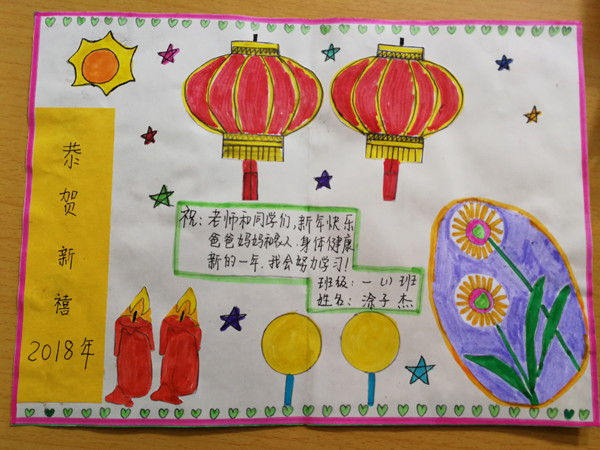 恭贺新禧
2018年
祝：老师和同学们，新年快乐
爸爸妈妈和家人．身体健康
新的一年．我会努力学习！
班级：一（1）班
姓名：涂子杰